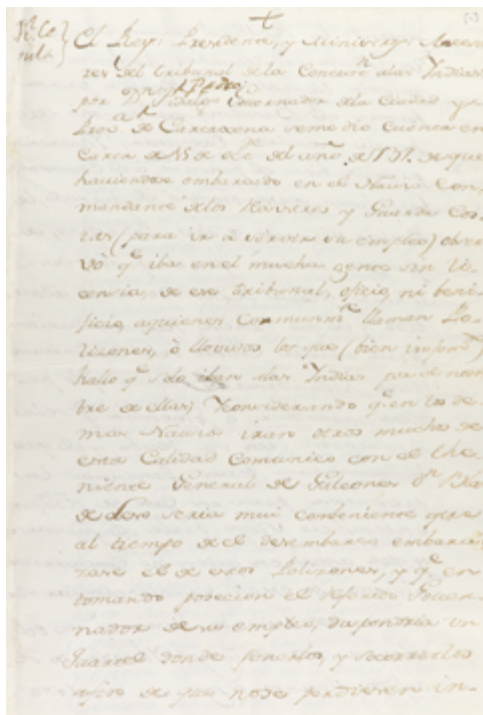 El Rey: Presidente, y Ministros Aseso
res del tribunal de la Contratn. a las Indias
por Dn. Pedro Fidalgo Governador de la Ciudad y
de Cartaxena seme dio Cuenta en
Carta de 15 de del año de de que
haviendose embarcado en el Navio Com
mandante de los Navieros y Guarda Cos
tas (para ir à servir su empleo) obser
vò qe. iba en el mucha gente sin li
cencia, de ese tribunal, oficio, ni beni
ficio, aquienes, Communmte. llaman Po
lizones, ò llovidos, los que (bien informdo.)
hallo qe. solo iban alas Indias por el nom
bre de ellas; Yconsiderando qe. en los de
mas Navios iran otros muchos de
esta Calidad Comunico con el the
niente General de Galeones Dn. Blas
de Leso seria mui conbeniente que
al tiempo de el desembarco embara
zase el de esos Polizones, y qe. en
tomando posecion el referido Gover
nador de su empleo, dispondria un
Quartel donde ponerlos, y socorrerlos
afin de que nose perdiesen in-